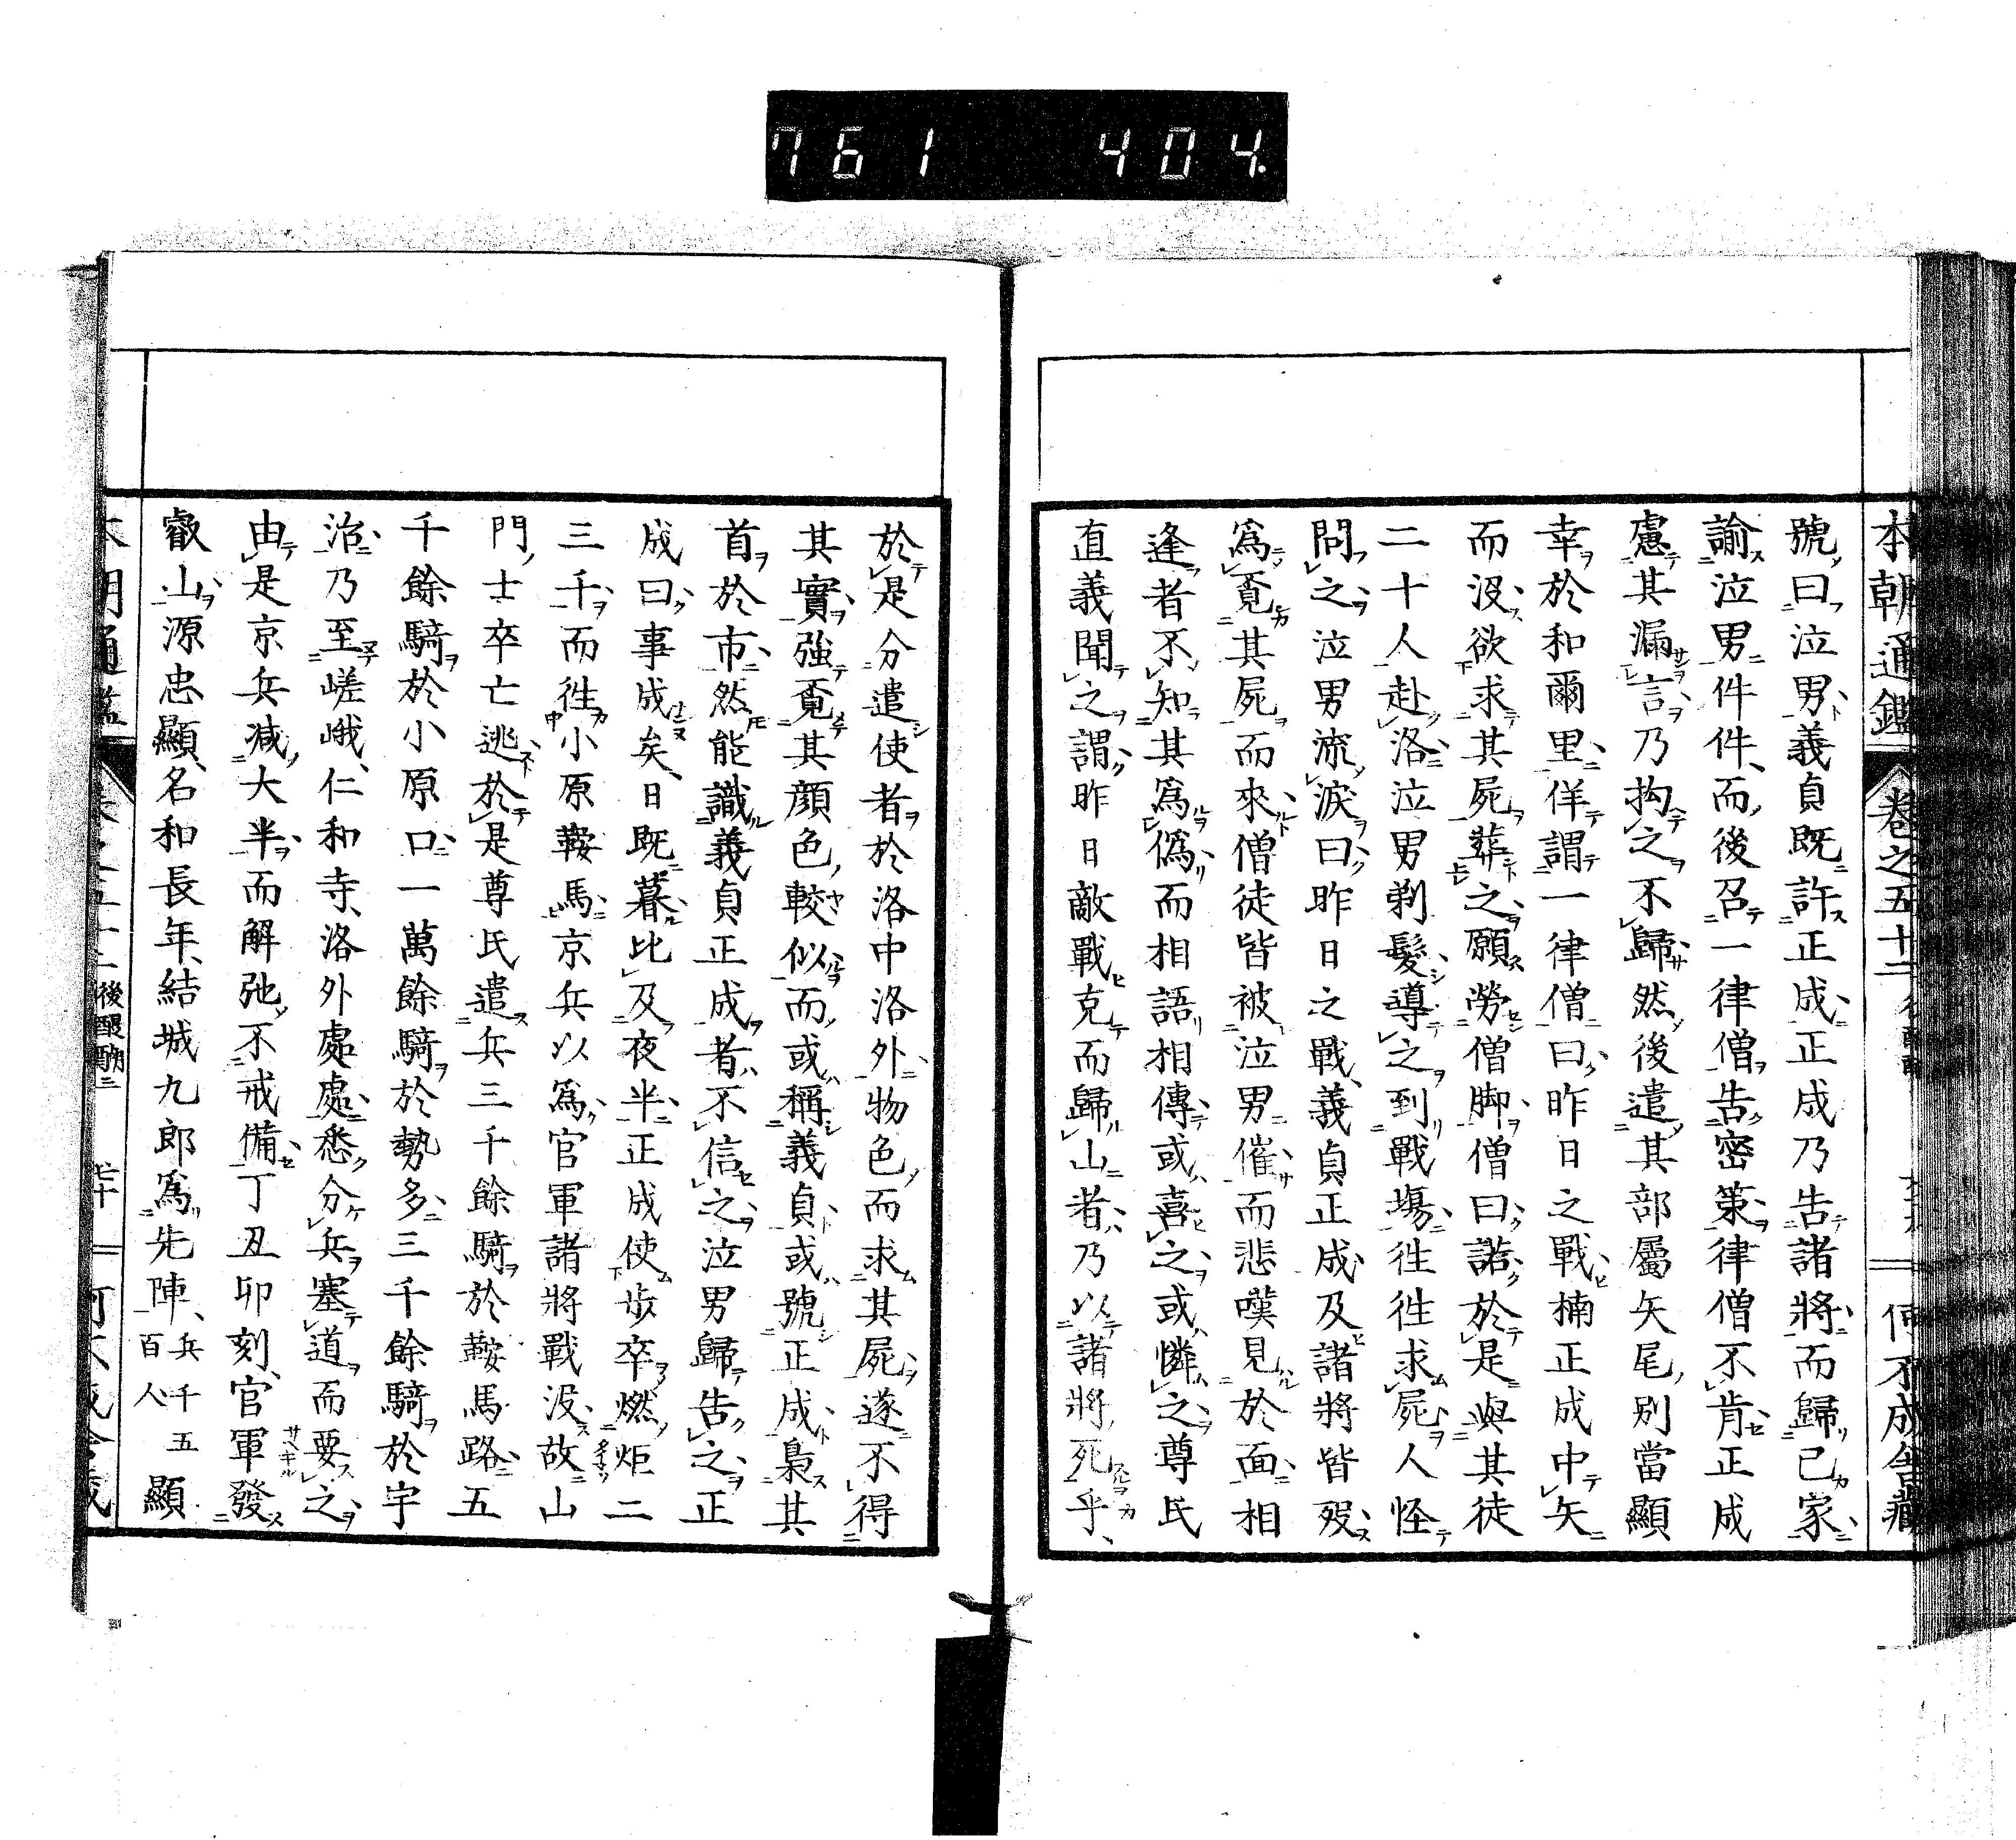 761 404.
本朝通鑑 卷之五十二 何不成舍藏
號曰泣男義貞既許正成正成乃告諸將而歸己家
諭泣男件件而後召一律僧告密策律僧不肯正成
慮其漏言乃拘之不歸然後遣其部屬矢尾別當顯
幸於和爾里佯謂一律僧曰昨日之戰楠正成中矢
而沒欲求其屍葬之願勞僧脚僧曰諾於是與其徒
二十人赴洛泣男剃髮導之到戰場往往求屍人怪
問之泣男流淚曰昨日之戰義貞正成及諸將皆歿
爲覔其屍而來僧徒皆被泣男催而悲嘆見於面相
逢者不知其爲僞而相語相傳或喜之或憐之尊氏
直義聞之謂昨日敵戰克而歸山者乃以諸將死乎
於是分遣使者於洛中洛外物色而求其屍遂不得
其實強覔其顏色較似而或稱義貞或號正成梟其
首於市然能識義貞正成者不信之泣男歸告之正
成曰事成矣日既暮比及夜半正成使步卒燃炬二
三千而往小原鞍馬京兵以爲官軍諸將戰沒故山
門士卒亡逃於是尊氏遣兵三千餘騎於鞍馬路五
千餘騎於小原口一萬餘騎於勢多三千餘騎於宇
治乃至嵯峨仁和寺洛外處處悉分兵塞道而要之
由是京兵減大半而解弛不戒備丁丑卯刻官軍發
叡山源忠顯名和長年結城九郎爲先陣兵千五百人顯
後醍醐二 七十